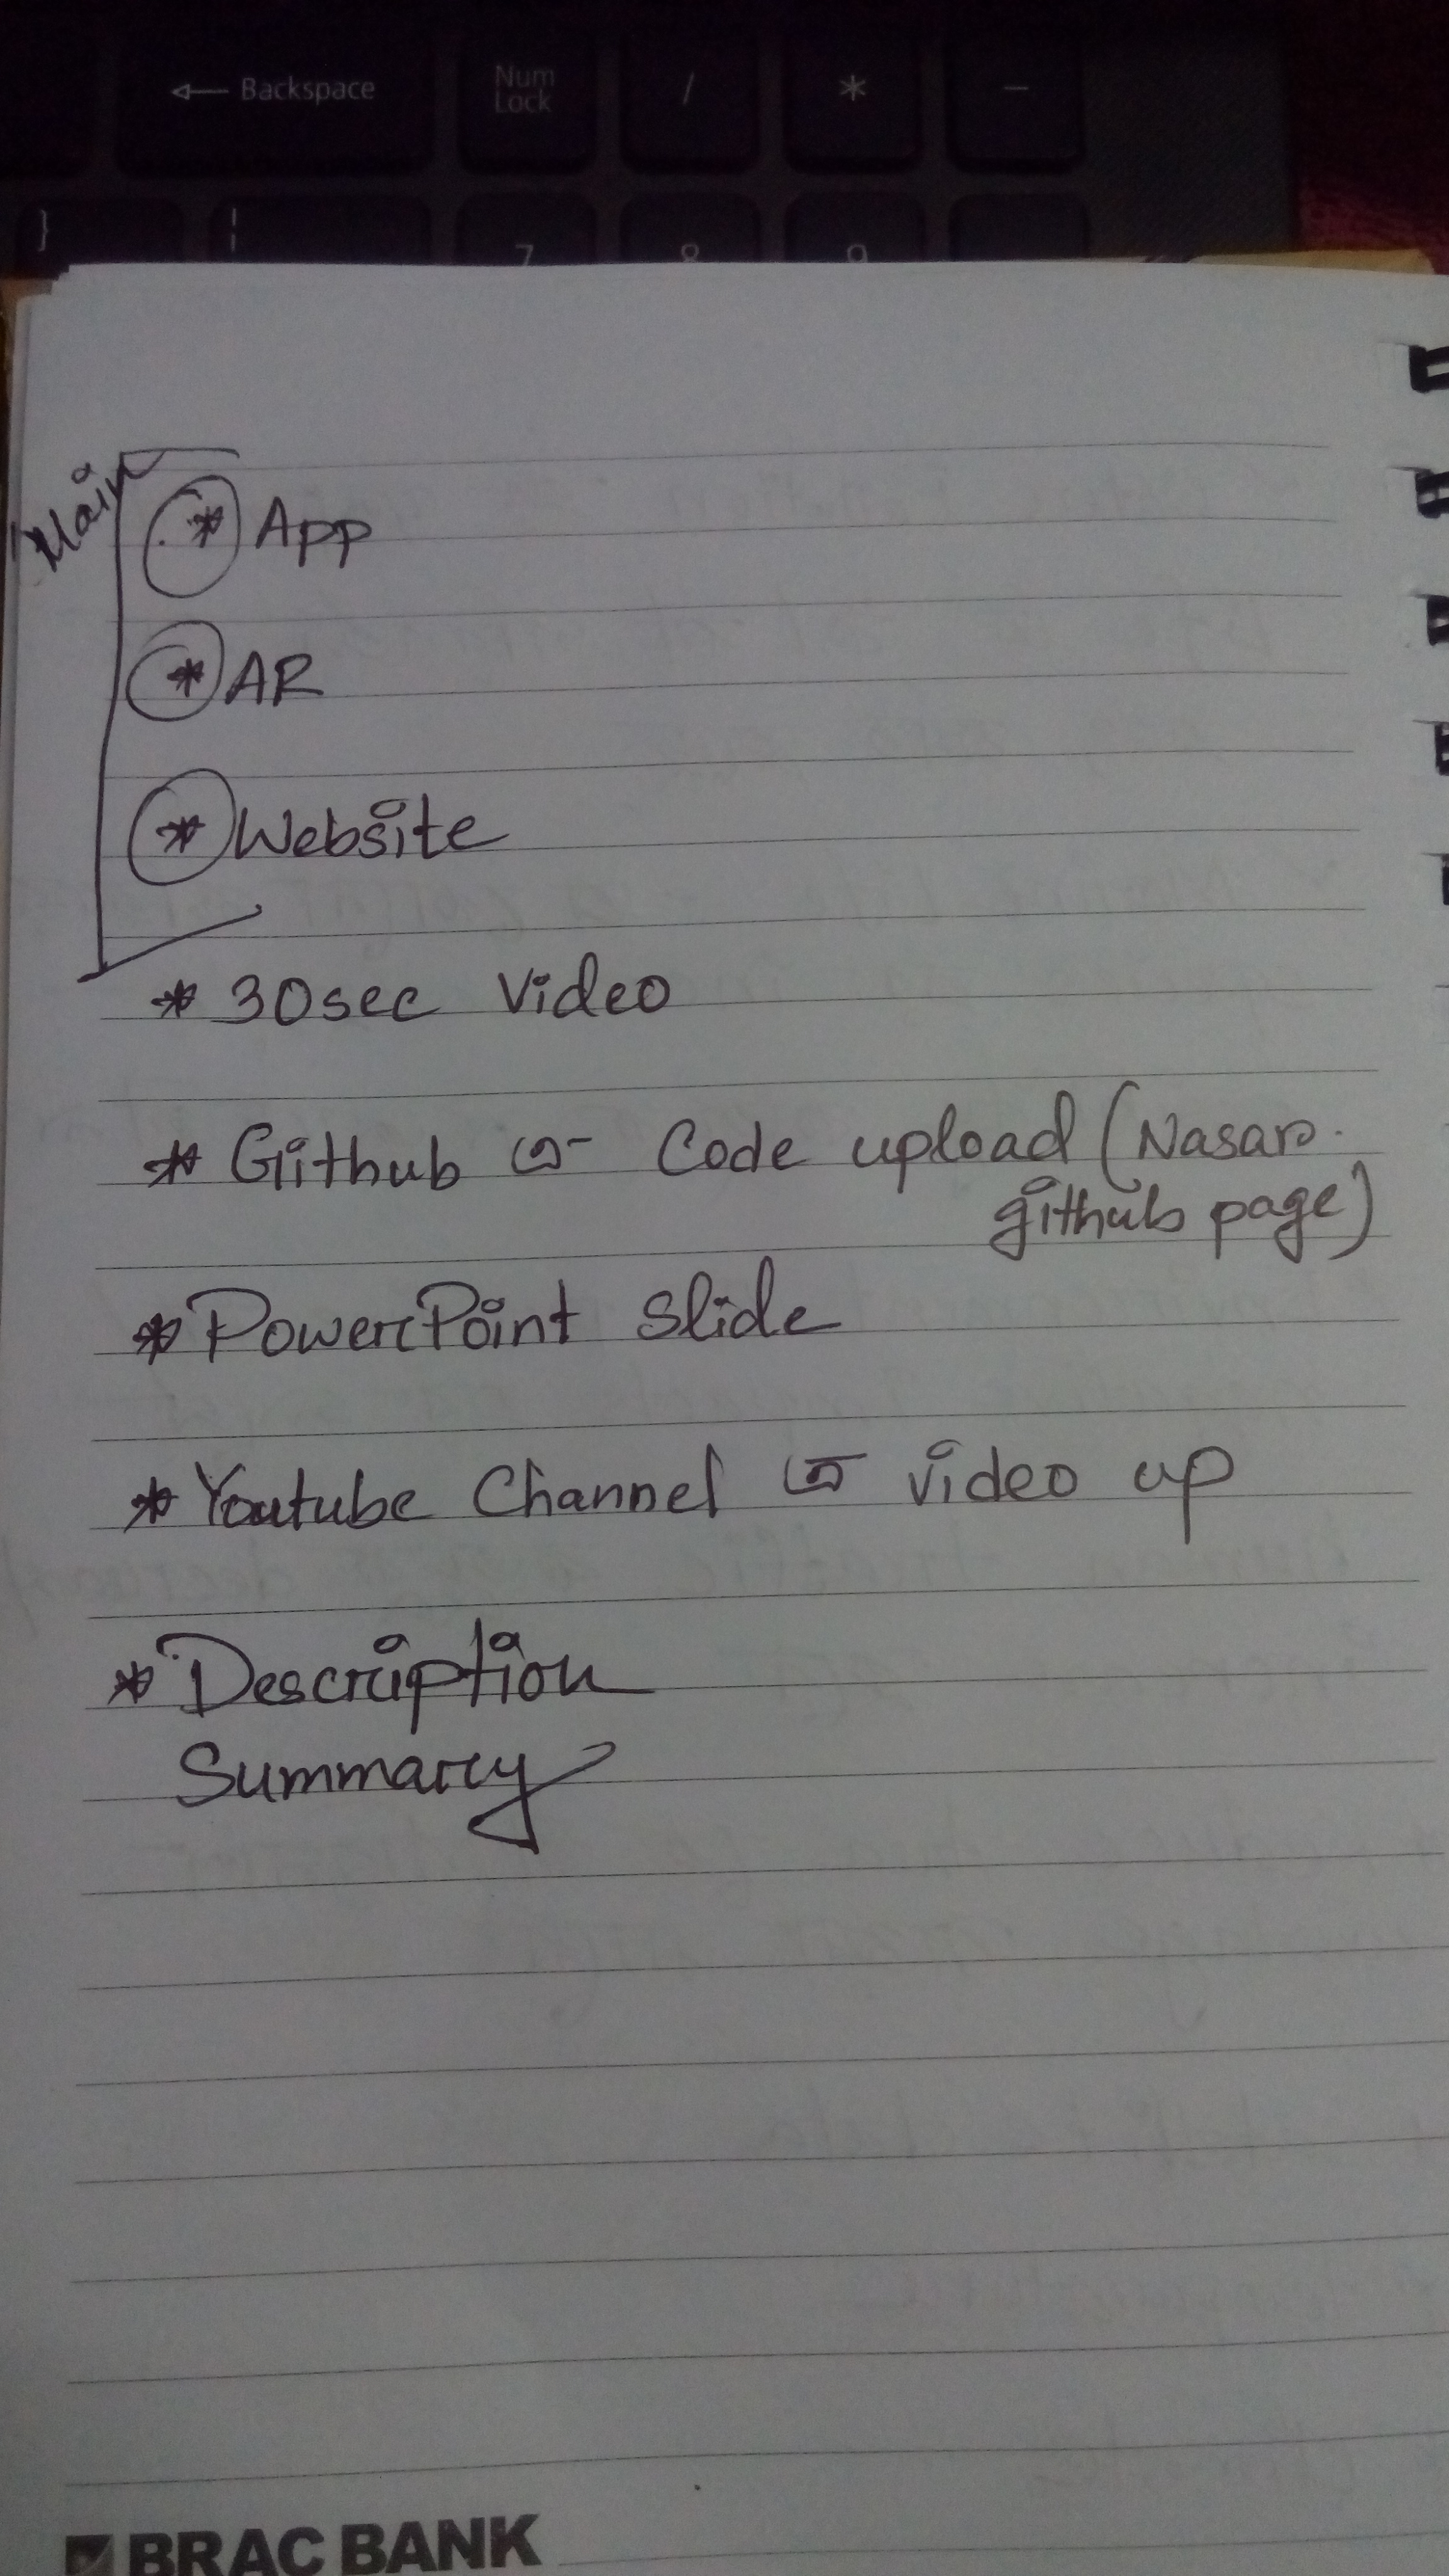 ← Backspace
Num
Lock
/
*
-
}
¦
7
8
9
Main
* App
* AR
* Website
* 30sec Video
* Github এ Code upload (Nasar
github page)
* PowerPoint Slide
* Youtube Channel এ video up
* Description
Summary
BRAC BANK